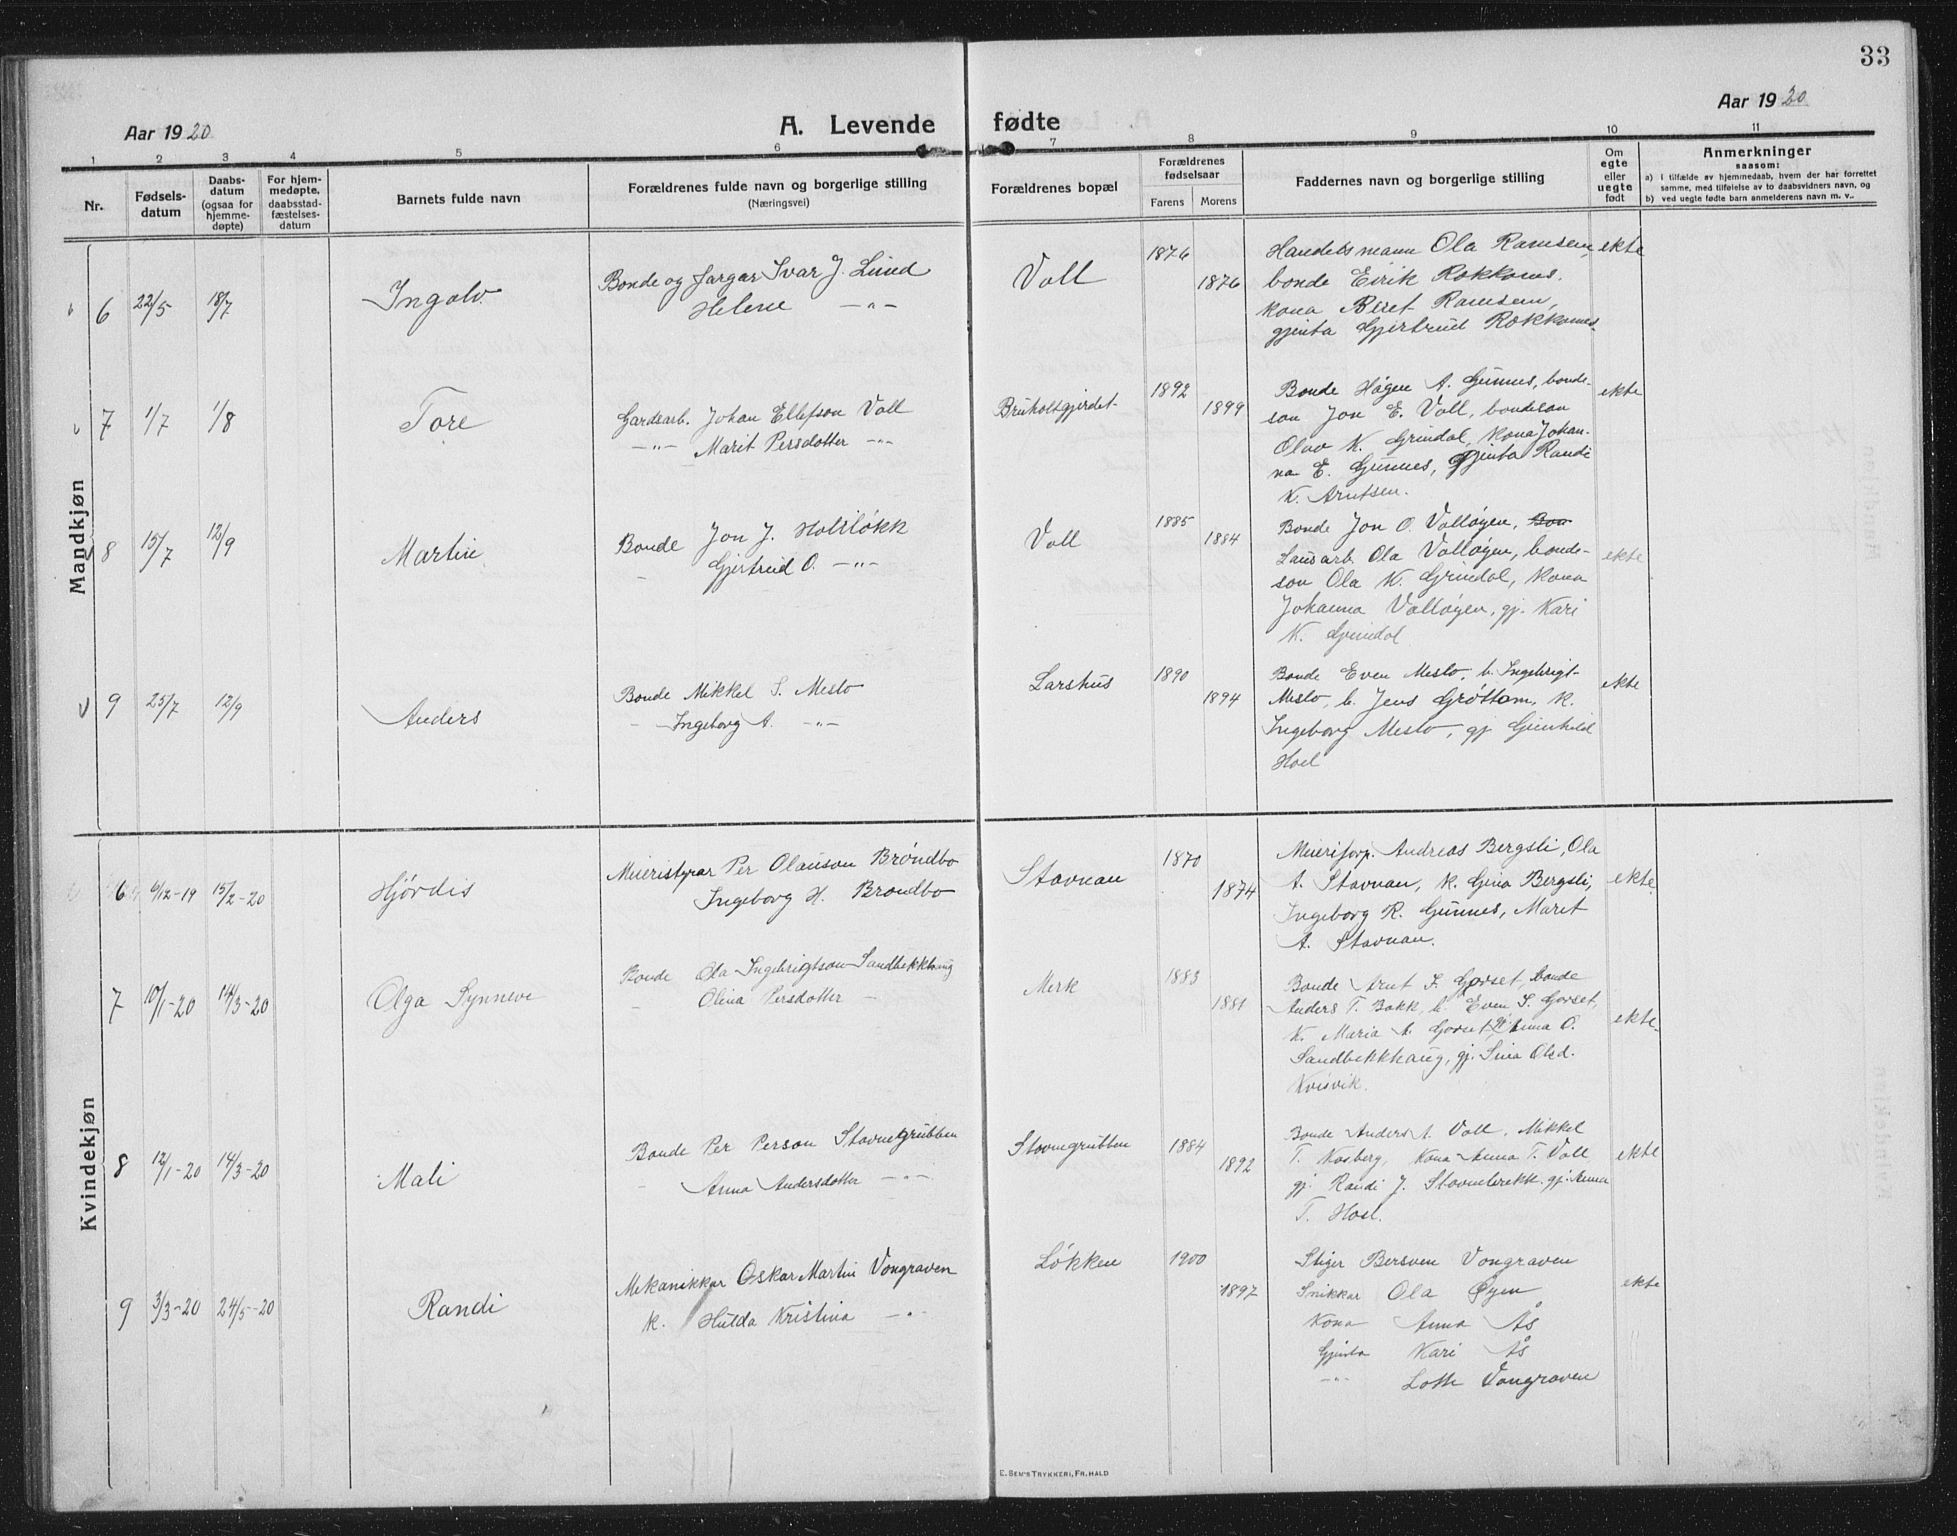 33
Aar 1920
A. Levende fødte
Aar 1920
1 2 3 4 5 6 7 8 9 10 11
Nr.
Fødsels-
datum
Daabs-
datum
(ogsaa for
hjemme-
døpte)
For hjem-
medøpte,
daabsstad-
fæstelses-
datum
Barnets fulde navn
Forældrenes fulde navn og borgerlige stilling
(Næringsvei)
Forældrenes bopæl
Forældrenes
fødselsaar
Farens Morens
Faddernes navn og borgerlige stilling
Om
egte
eller
uegte
født
Anmerkninger
saasom:
a) i tilfælde av hjemmedaab, hvem der har forrettet
samme, med tilføielse av to daabsvidners navn, og
b) ved uegte fødte barn anmelderens navn m. v..
Mandkjøn
6 22/5 18/7 Ingolv
Bonde og fargar Ivar J. Lund
Helene —"—
Voll 1876 1876
Handelsmann Ola Ramsem,
bonde Eirik Rokkones.
kona Beret Ramsem,
gjenta Gjertrud Rokkones.
ekte
7 1/7 1/8 Tore
Gardsarb. Johan Ellefson Voll
—"— Marit Persdotter —"—
Bruholtgjerdet 1892 1899
Bonde Høgen A. Gunnes, bonde-
son Jon E. Voll, bondeson
Olav K. Grindal, kona Johan-
na E. Gunnes, Gjenta Randi
K. Arntsen.
ekte
8 15/7 12/9 Martin
Bonde Jon J. Holtløkk
- Gjertrud O. —"—
Voll 1885 1884
Bonde Jon O. Valløyen, Bon
Lausarb. Ola Valløyen, bonde-
son Ola K. Grindal, kona
Johanna Valløyen, gj. Kari
K. Grindal
ekte
9 25/7 12/9 Anders
Bonde Mikkel S. Meslo
- Ingeborg A. —"—
Larshus 1890 1894
Bonde Even Meslo, b. Ingebrigt
Meslo, b. Jens Grøttom, k.
Ingeborg Meslo, gj Gunhild
Hoel
ekte
Kvindekjøn
6 6/12-19 15/2-20 Hjørdis
Meieristyrar Per Olauson Brøndbo
Ingeborg H. Brøndbo
Stavnan 1870 1874
Meieriforp. Andreas Bergsli, Ola
A. Stavnan, k. Gina Bergsli,
Ingeborg K. Gunnes, Marit
A. Stavnan.
ekte
7 10/1-20 14/3-20 Olga Synneve
Bonde Ola Ingebrigtson Sandbekkhaug
- Olina Persdotter -
Merk 1883 1881
Bonde Arnt I. Gorset, bonde
Anders T. Bakk, b. Even I. Gorset,
K. Maria A. Gorset, gj Anna O.
Sandbekkhaug, gj. Sina Olsd.
Kvisvik.
ekte
8 12/1-20 14/3-20 Mali
Bonde Per Person Stavnegrubben
- Anna Andersdotter —"—
Stavnegrubben 1884 1892
Bonde Anders A. Voll, Mikkel
T. Kosberg, Kona Anna T. Voll
gj. Randi J. Stavnebrekk. gj. Anna
T. Hoel.
ekte
9 3/3-20 24/5-20 Randi
Mekanikkar Oskar Martin Vongraven
k. Hulda Kristina —"—
Løkken 1900 1897
Stiger Bersven Vongraven
Snikkar Ola Øyen
Kona Anna Ås
Gjenta Kari Ås
—"— Lotte Vongraven
ekte
E. SEM'S TRYKKERI, FR.HALD